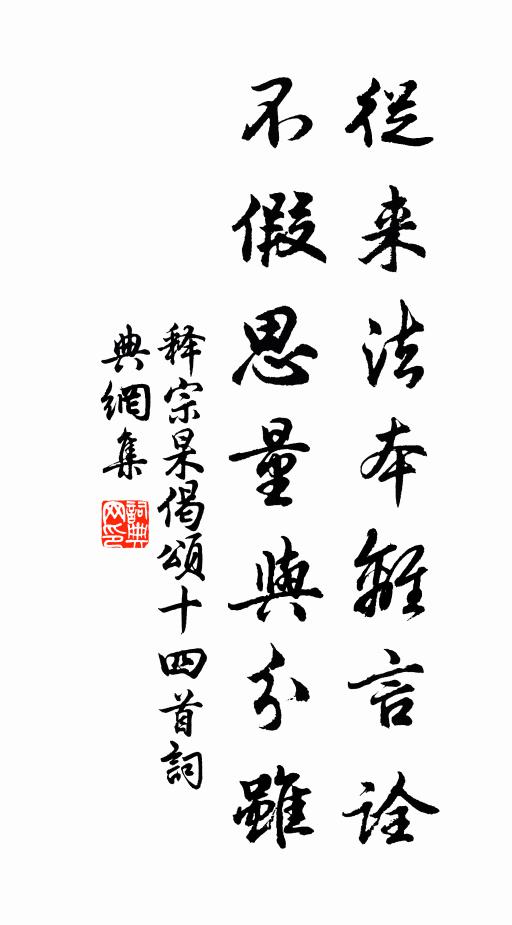 從来法本離言詮
不假思量與分雖
释宗杲偈頌十四首詞
典網集
詞典網印